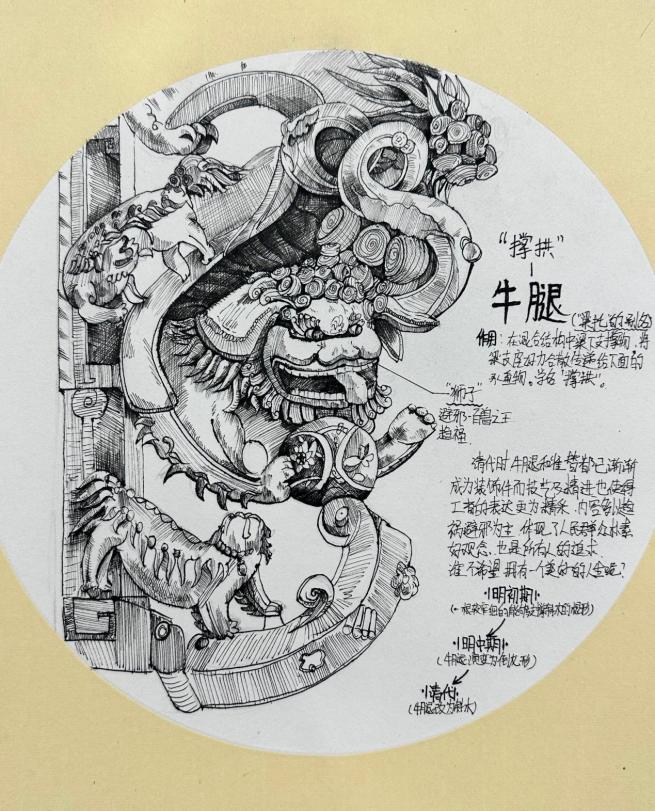 “撑拱”
牛腿
(梁托的别名)
作用：在混合结构中梁下支撑物，将
梁支座的力分散传递给下面的
承重物。学名“撑拱”。
“狮子”
避邪·百兽之王
趋福
清代时牛腿和雀替都已渐渐
成为装饰件而技艺及精进也使得
工者的表达更为精朵，内容多以趋
祸避邪为主 体现了人民群众朴素
好观念，也是所有人的追求
谁不希望拥有一个美好的人生呢？
明初期
明中期
(牛腿演变为倒龙形)
清代
(牛腿改为斜木)